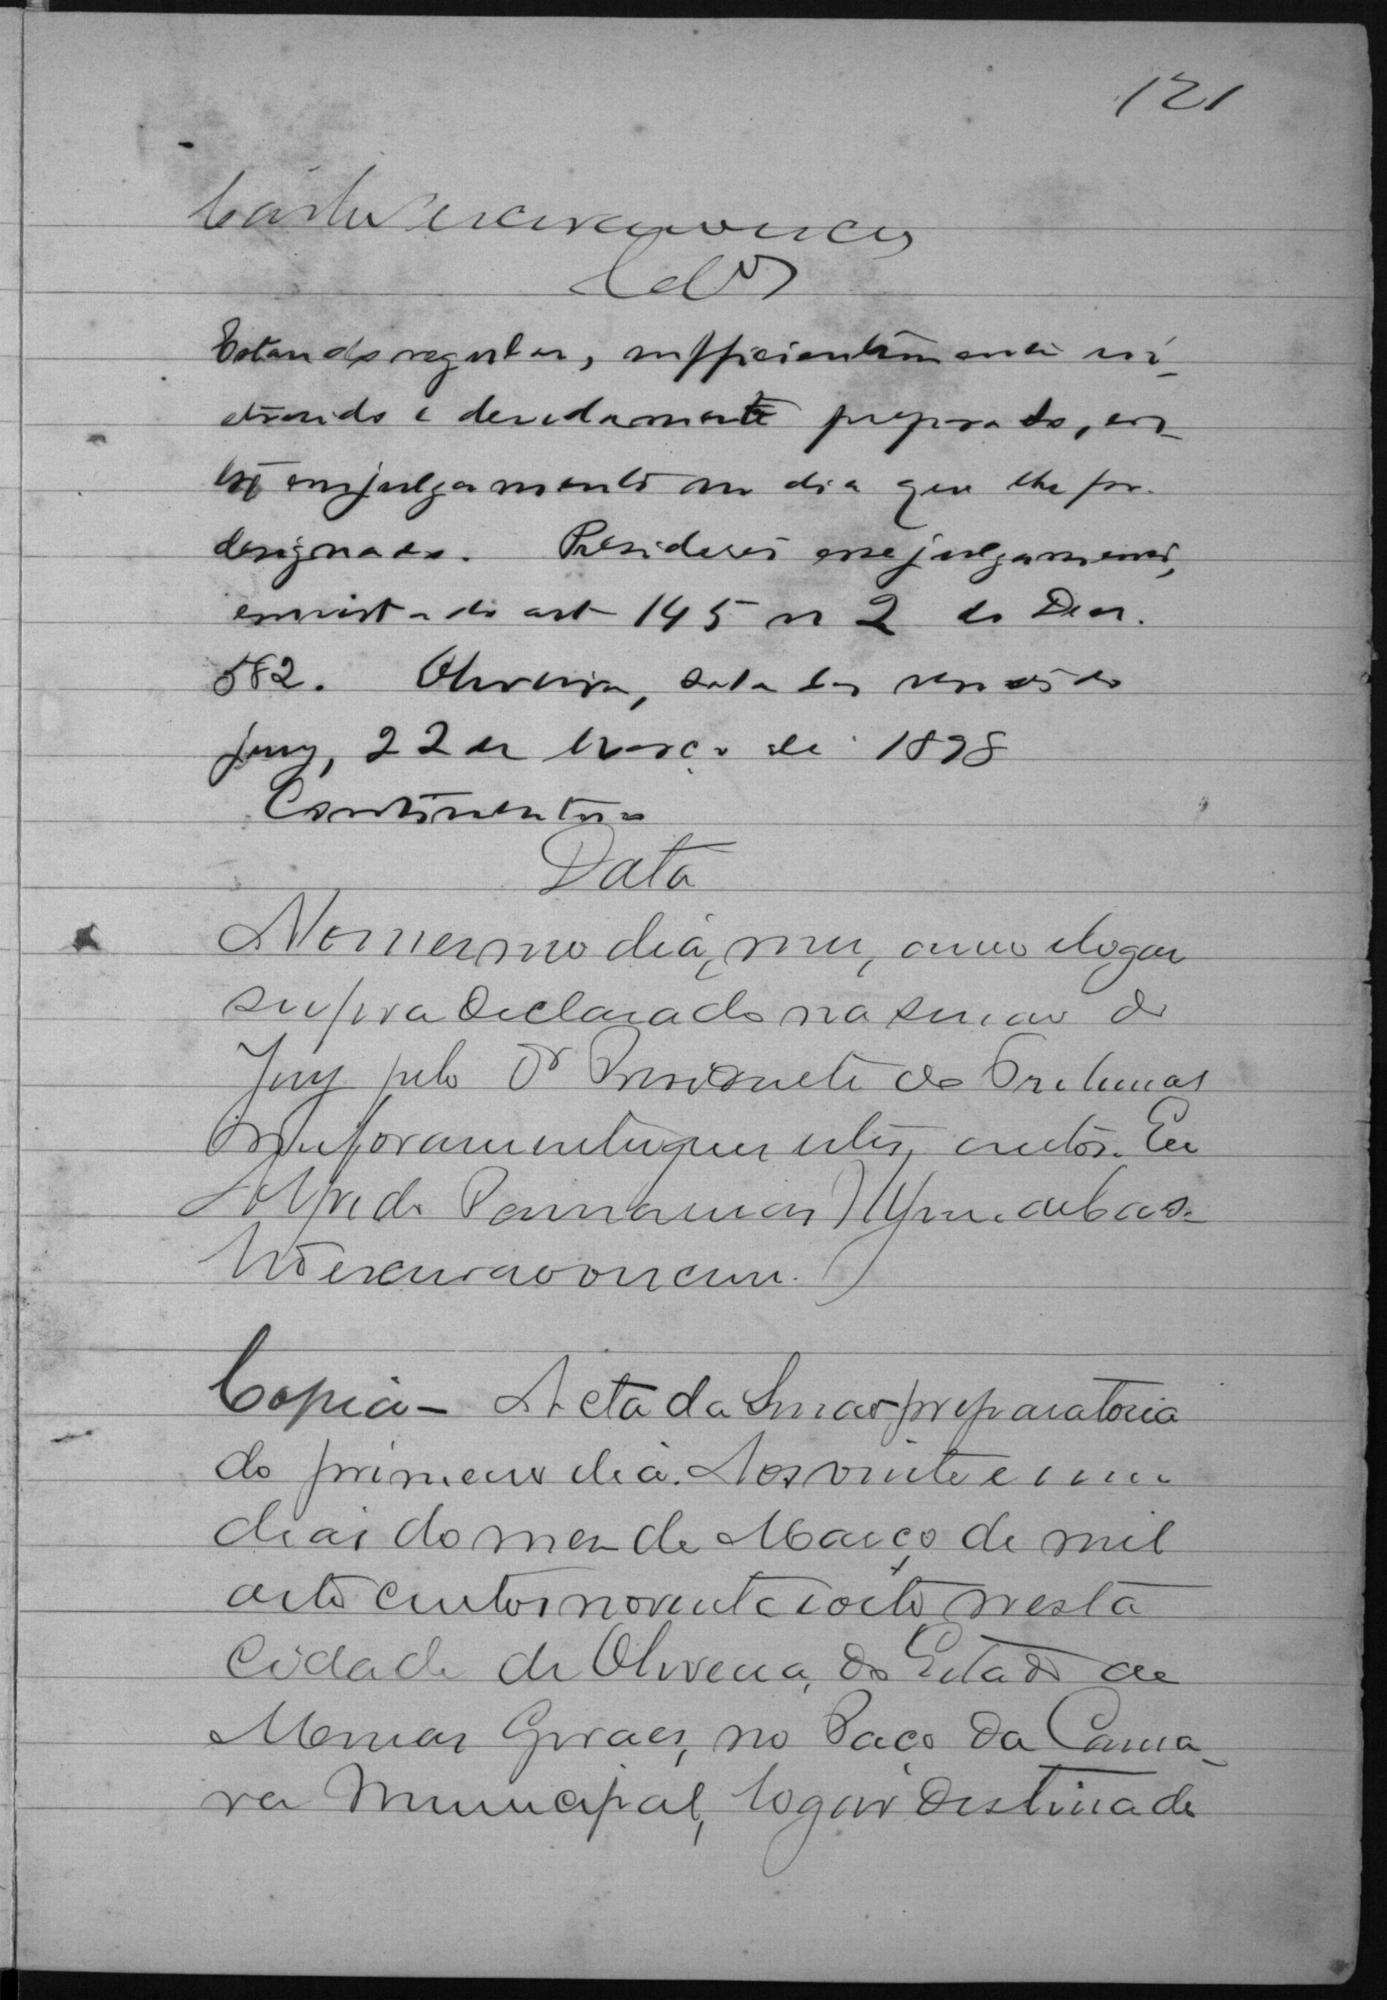 121
Clos
Estando regular, sufficientemente ins-
truido e devidamente preparado, en-
tre em julgamento no dia que lhe for
designado. Presiderei esse julgamento,
em vista do art 145 n 2 do Decr.
582. Oliveira, sala das sessões do
jury, 22 de Março de 1898
Continentino
Data
No mesmo dia, mez, anno e logar
supra declarado na sessão do
Jury pelo Dr Presidente do Tribunal
me foram entregues estes autos. Eu
Alfredo
escrivão o escrevi.
Copia - Acta da Sessão preparatoria
do primeiro dia. Aos vinte e um
dias do mez de Março de mil
oito centos noventa e oito nesta
Cidade de Oliveira, do Estado de
Minas Geraes, no Paço da Cama-
ra Municipal, logar destinado